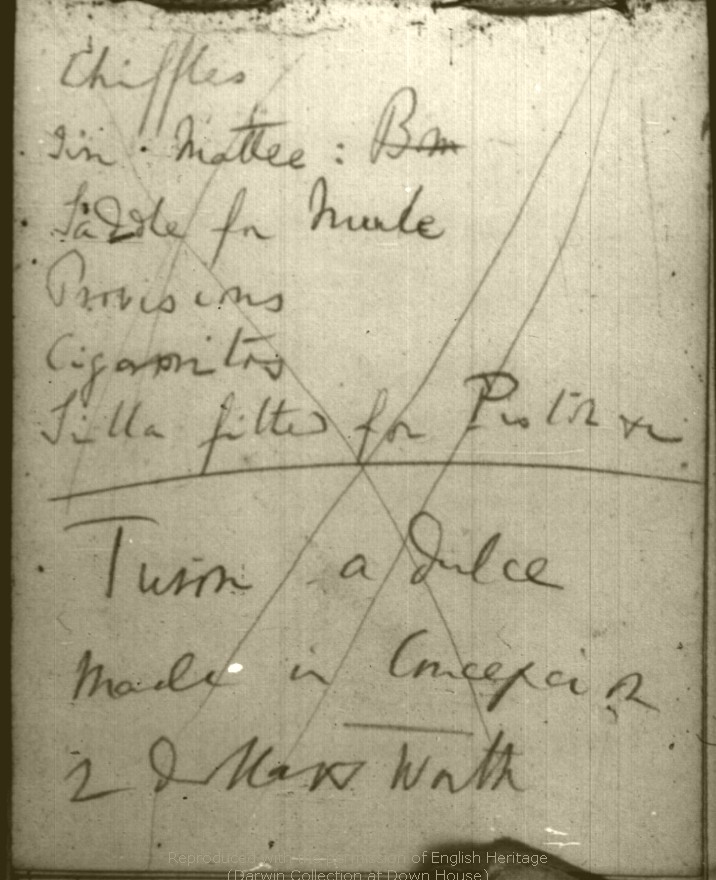 Chiffles
Tin : Mattee : Bm
Saddle for Mule
Provisions
Cigarritos
Silla fitted for Pistol &c
Turon a dulce
Made in Concepcion
2 dollars Worth
Reproduced with the permission of English Heritage
(Darwin Collection at Down House)